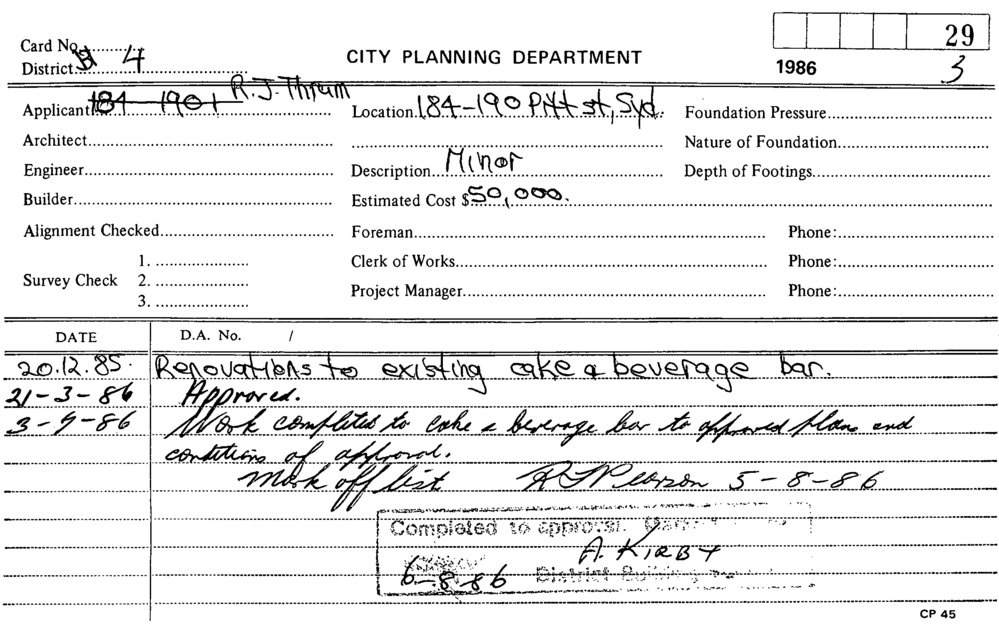 29
Card No.
CITY PLANNING DEPARTMENT
District 4
1986
3
Applicant 184-190 R.J. Thrum
Location 184-190 Pitt st, Syd.
Foundation Pressure
Architect
Nature of Foundation
Engineer
Description Minor
Depth of Footings
Builder
Estimated Cost $50,000.
Alignment Checked
Foreman
Phone:
Survey Check
1.
2.
3.
Clerk of Works
Phone:
Project Manager
Phone:
DATE
D.A. No. /
20.12.85. Renovations to existing cake & beverage bar.
21-3-86 Approved.
3-9-86 Work completed to cake & beverage bar to approved plans and
conditions of approval.
Mark off list R Pearson 5-8-86
Completed to approval.
A. KIRBY
6-8-86 District Building
CP 45